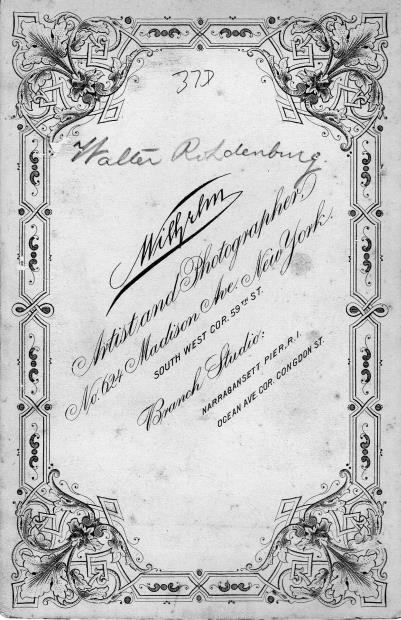 37D
Walter Rohdenburg.
Wilhelm
Artist and Photographer
No. 624 Madison Ave. New York.
SOUTH WEST COR. 59TH ST.
Branch Studio:
NARRABANSETT PIER, R.I.
OCEAN AVE COR. CONGDON ST.